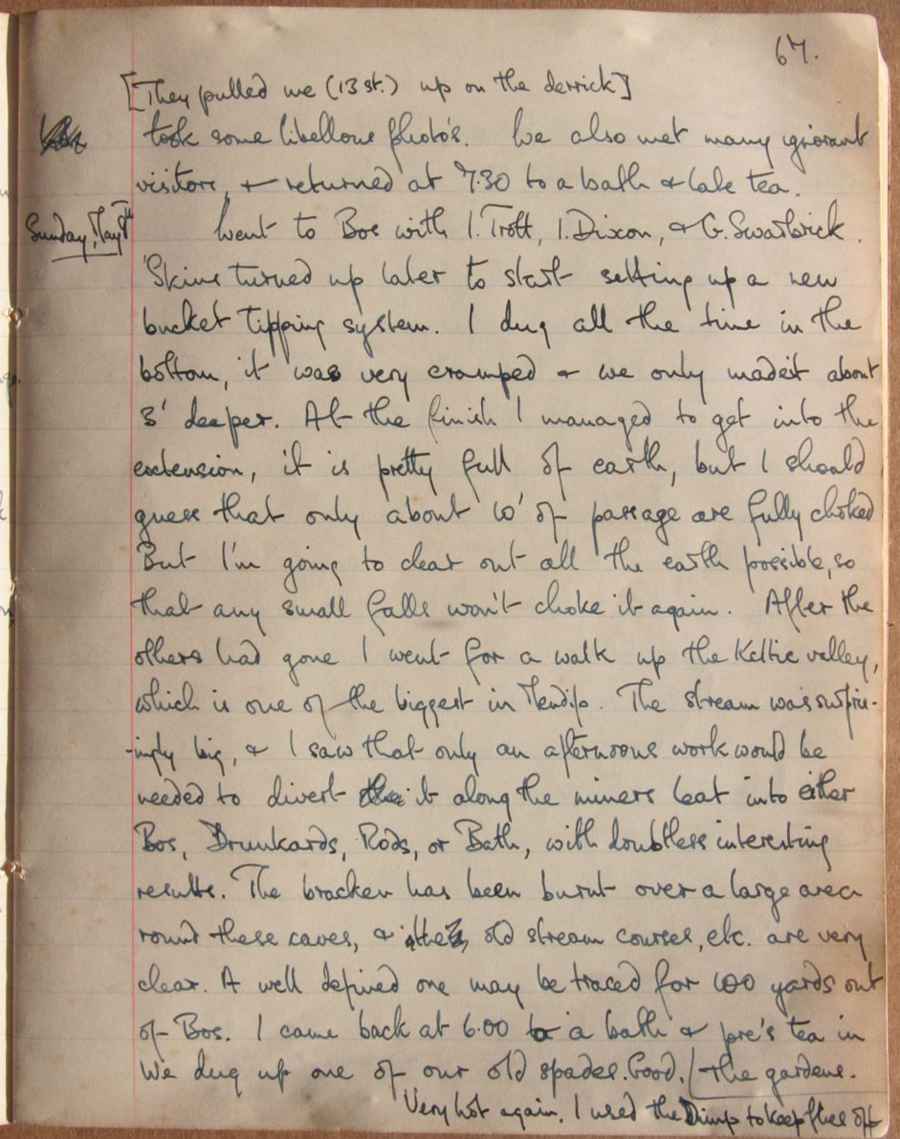 67.
[They pulled me (13 st.) up on the derrick]
took some libellous photo's. We also met many ignorant
visitors, & returned at 7.30 to a bath & late tea.
Sunday, May 8th
Went to Bos with I. Trott, I. Dixon, & G. Swarbrick.
'Skins turned up later to start setting up a new
bucket tipping system. I dug all the time in the
bottom, it was very cramped & we only made it about
3' deeper. At the finish I managed to get into the
extension, it is pretty full of earth, but I should
guess that only about 10' of passage are fully choked
But I'm going to clear out all the earth possible, so
that any small falls won't choke it again. After the
others had gone I went for a walk up the Keltic valley,
which is one of the biggest in Mendip. The stream was surpris-
-ingly big, & I saw that only an afternoons work would be
needed to divert it along the miners leat into either
Bos, Drunkards, Rods, or Bath, with doubtless interesting
results. The bracken has been burnt over a large area
round these caves, & old stream courses, etc. are very
clear. A well defined one may be traced for 100 yards out
of Bos. I came back at 6.00 to a bath & pre's tea in
the gardens.
We dug up one of our old spades. Good.
Very hot again. I used the Dimp to keep flies off